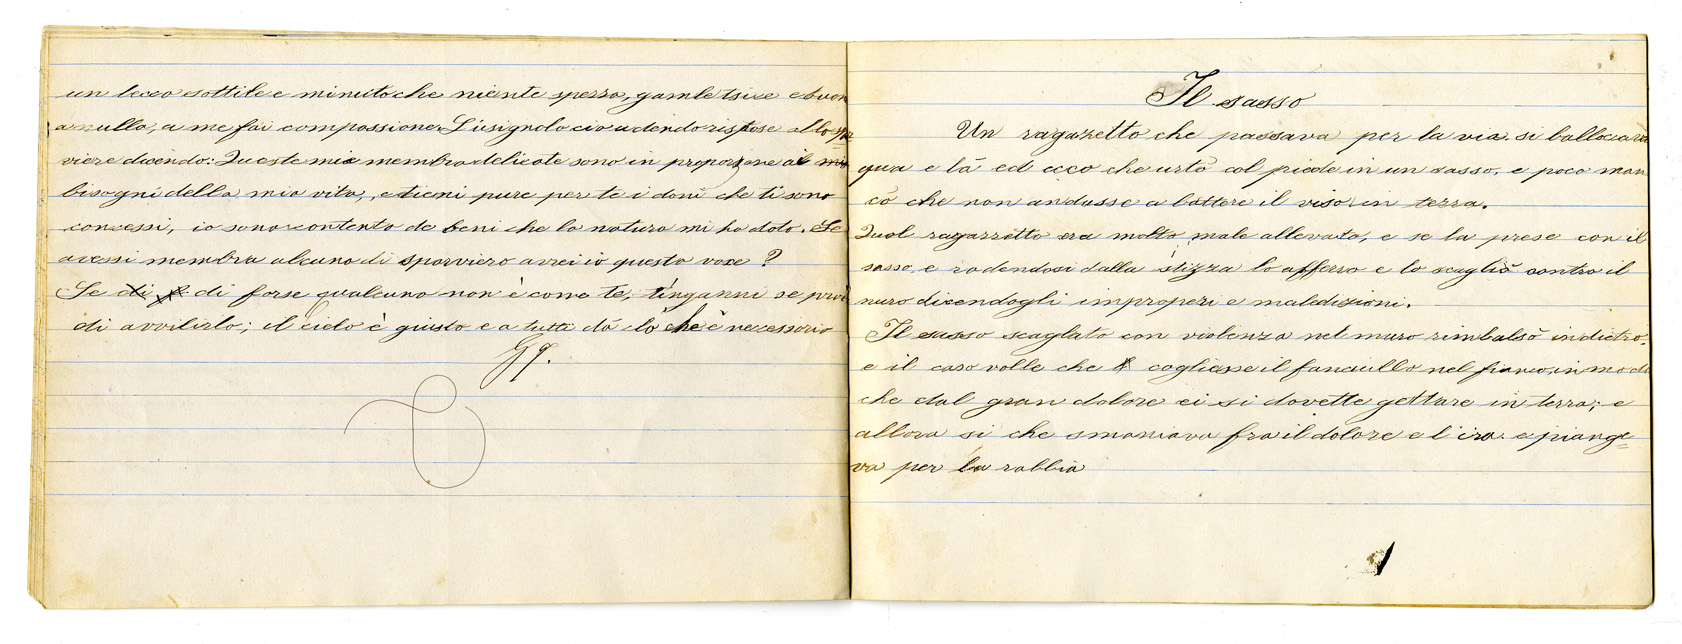 un becco sottile e minuto che niente spezza, gambettsice e buon
a nulla, a me fai compassione. L'usignolo cio udendo rispose allo spar
viere dicendo: Queste mie membra delicate sono in proporzone ai
bisogni della mia vita, e tieni pure per te i doni che ti sono
concessi, io sono contento de beni che la natura mi ha dato. Se
avessi membra alcuno di sparviero avrei io questa voce ?
Se di forse qualcuno non è come te, t'inganni se
di avvilirlo; il cielo è giusto e a tutti dà ciò che è necessario
Il sasso
Un ragazzetto che passava per la via si ballocava
qua e là ed ecco che urtò col piede in un sasso, e poco man
cò che non andasse a battere il viso in terra.
Quel ragazzetto era molto male allevato, e se la prese con il
sasso, e rodendosi dalla stizza lo afferro e lo scagliò contro il
muro dicendogli improperi e maledizioni.
Il sasso scaglato con violenza nel muro rimbalsò indietro,
e il caso volle che cogliesse il fanciullo nel fianco, in modo
che dal gran dolore ei si dovette gettare in terra; e
allora si che smaniava fra il dolore e l'ira e piange=
va per la rabbia